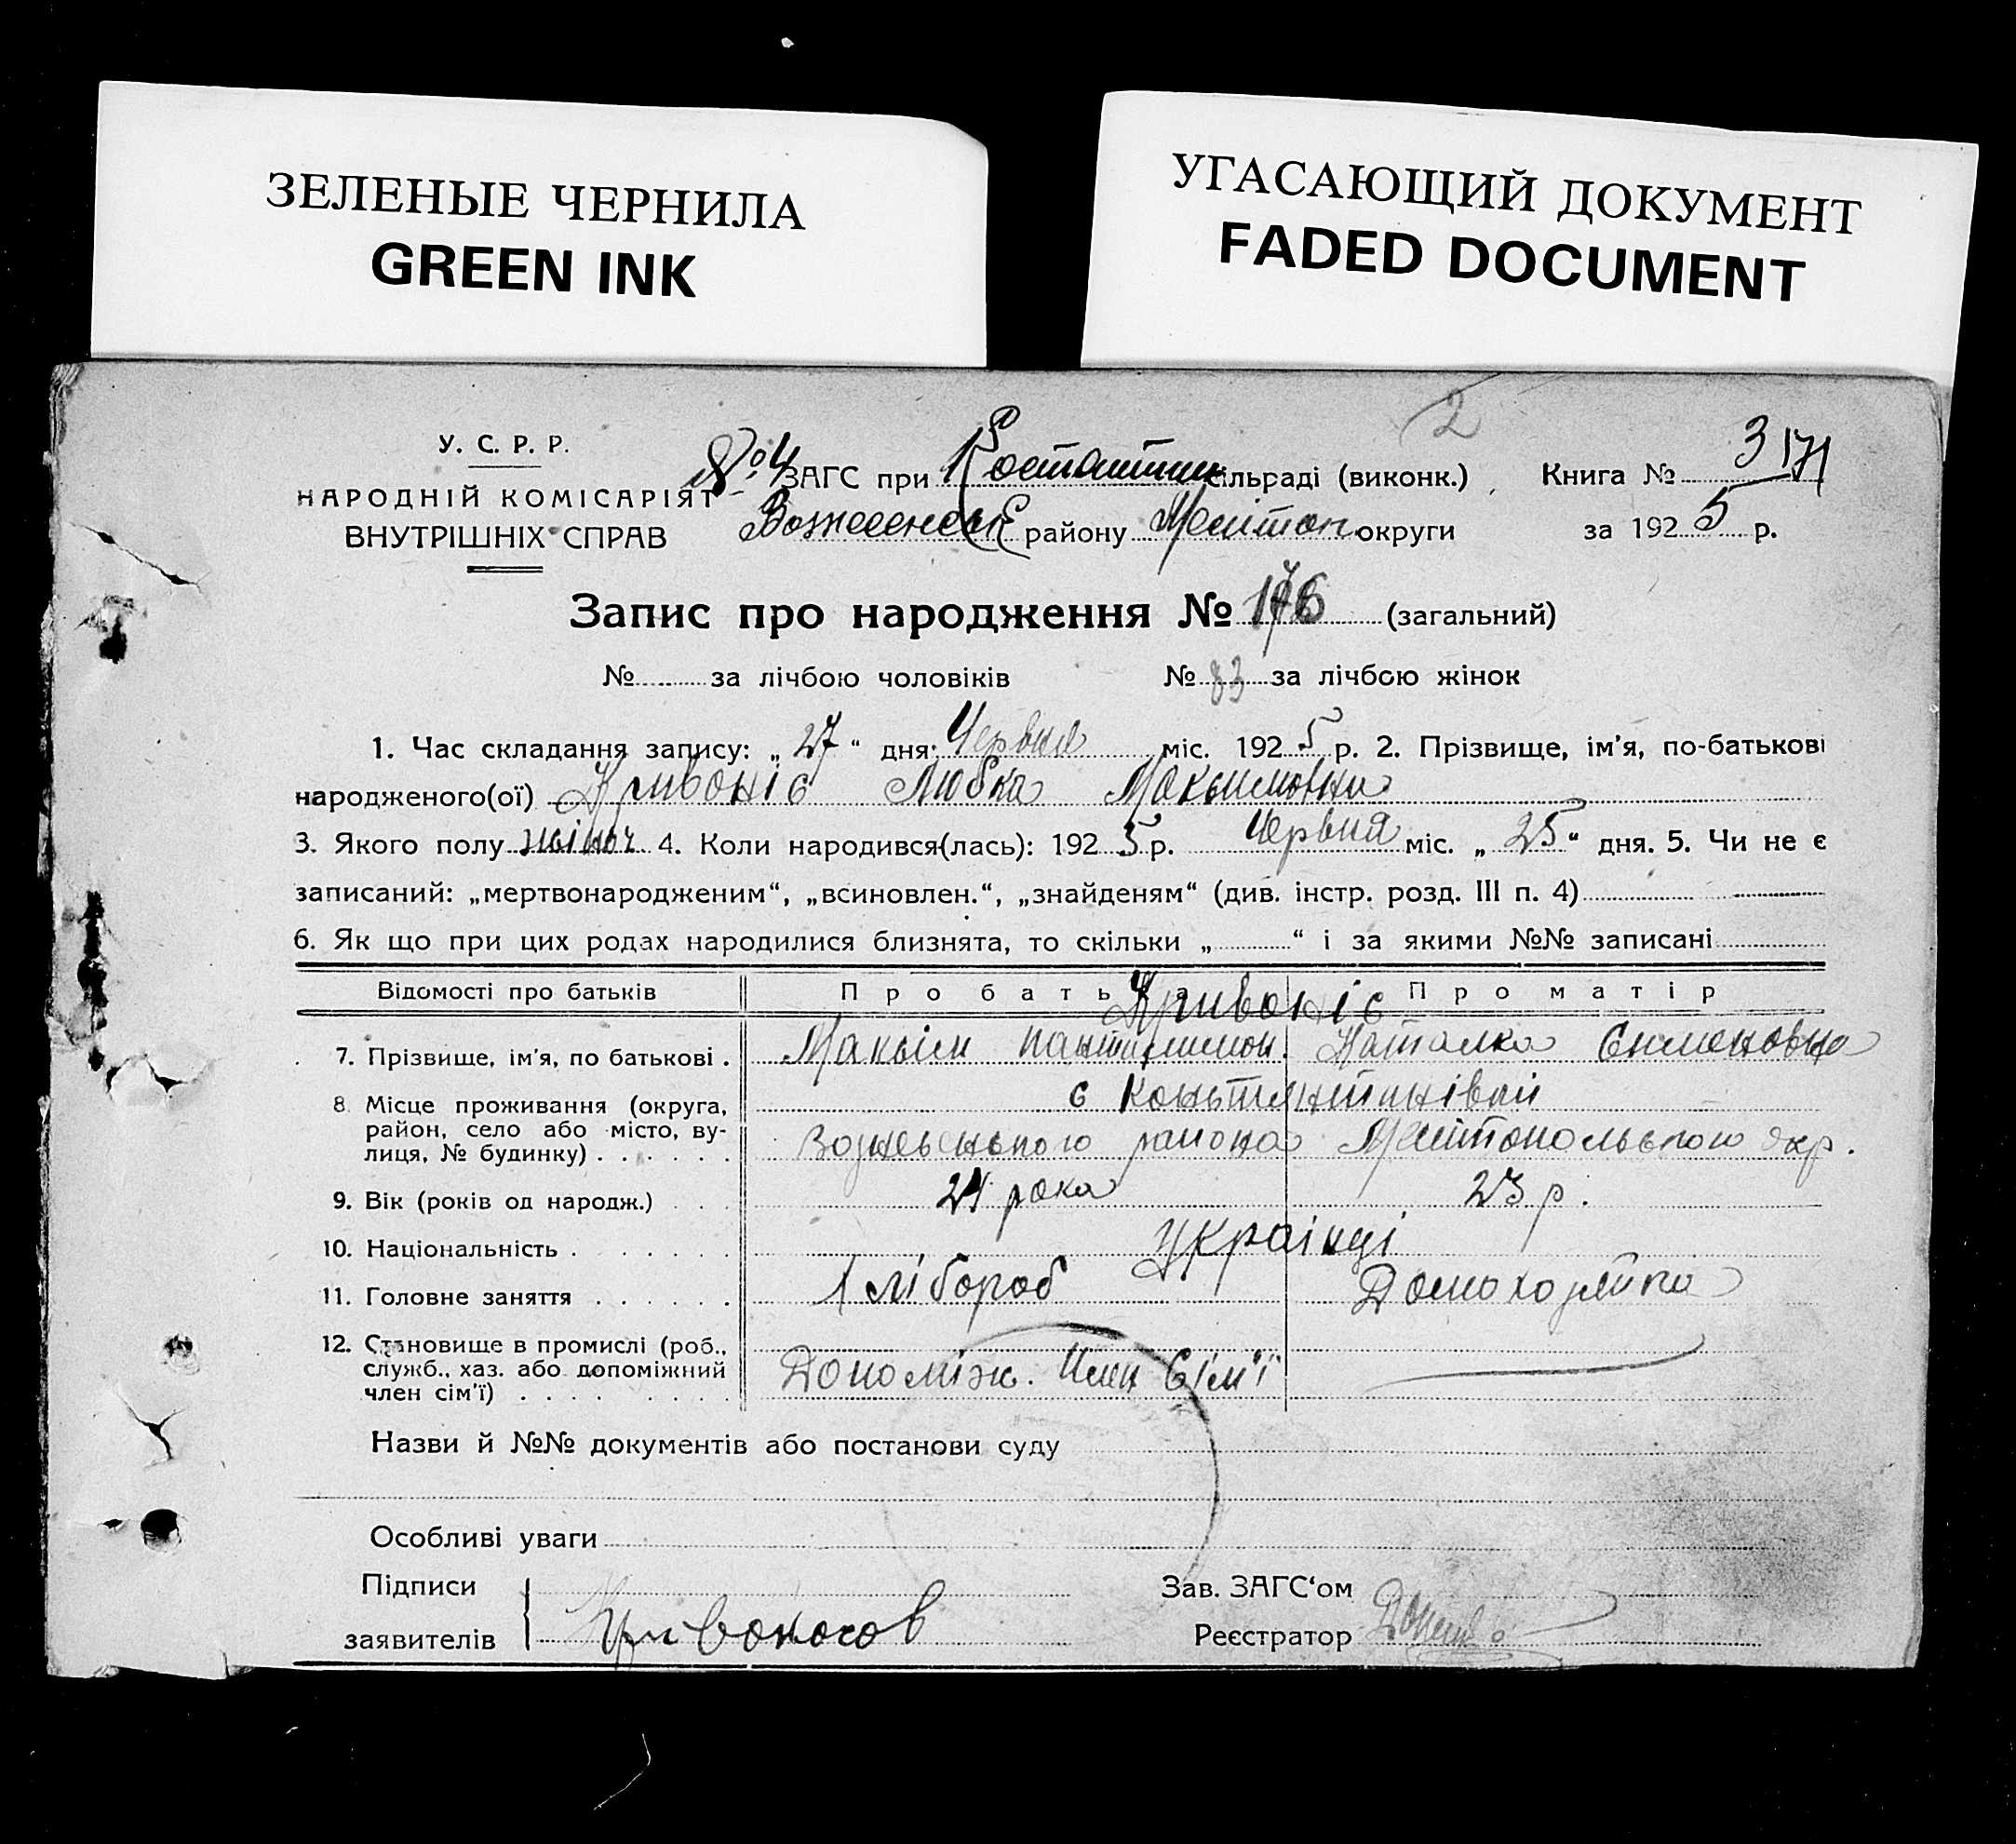 ЗЕЛЕНЫЕ ЧЕРНИЛА
GREEN INK
УГАСАЮЩИЙ ДОКУМЕНТ
FADED DOCUMENT
2
У. С. Р. Р.
НАРОДНІЙ КОМІСАРІЯТ
ВНУТРІШНІХ СПРАВ
№ 4 ЗАГС при сільраді (виконк.)
району Мелітоп округи
Книга № 3
за 1925 р.
Запис про народження № 176 (загальний)
№ за лічбою чоловіків № 83 за лічбою жінок
1. Час складання запису: „ 27 “ дня: Червня міс. 1925 р. 2. Прізвище, ім'я, по-батькові
народженого(ої) Кривоніс Любка Максимовна
3. Якого полу жіноч 4. Коли народився(лась): 1925 р. Червня міс. „ 25 “ дня. 5. Чи не є
записаний: „мертвонародженим“, „всиновлен.“, „знайденям“ (див. інстр. розд. III п. 4)
6. Як що при цих родах народилися близнята, то скільки „ “ і за якими №№ записані
Відомості про батьків Про батька Про матір
Кривоніс
7. Прізвище, ім'я, по батькові . Максім Наталка Семеновна
8 Місце проживання (округа, с Констянтинівпи
район, село або місто, ву-
лиця, № будинку) . . . . . . района Мелітопольського окр.
9. Вік (років од народж.) . . . 24 рока 23 р.
10. Національність . . . . . . . Українці
11. Головне заняття . . . . . . Хлібороб Домохозяйка
12. Становище в промислі (роб.,
служб., хаз. або допоміжний Допоміж. член сім'ї
член сім'ї) . . . . . . . .
Назви й №№ документів або постанови суду
Особливі уваги
Підписи Зав. ЗАГС‘ом
заявителів Кривоносов Реєстратор